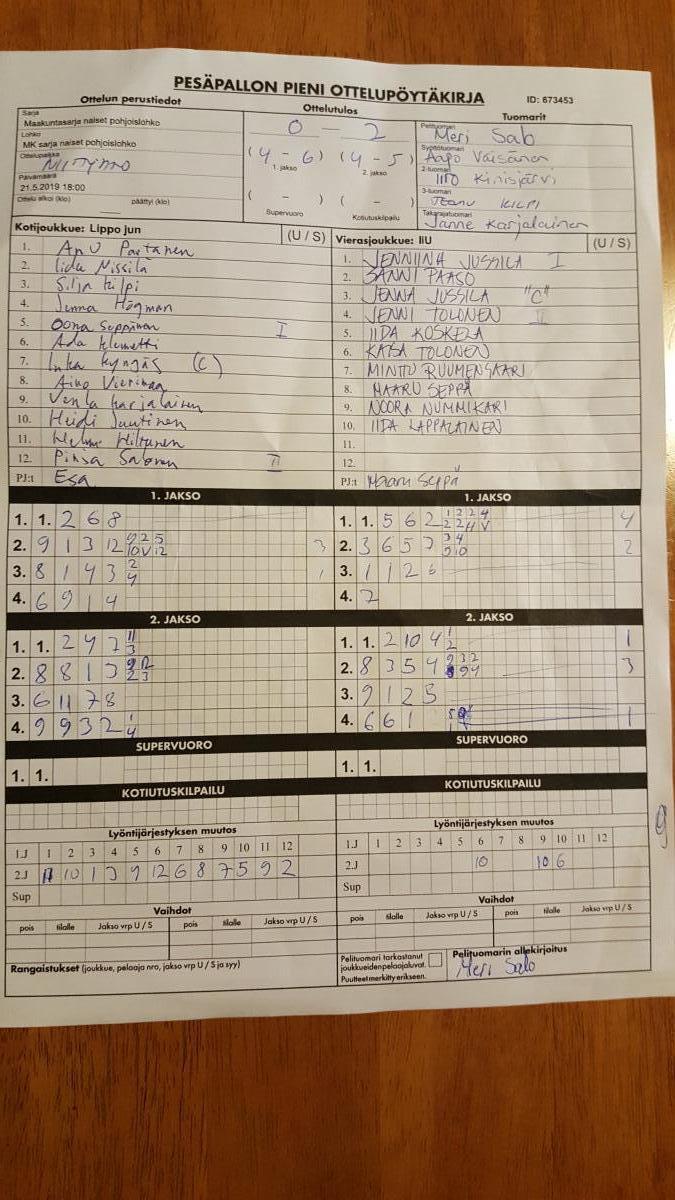 PESÄPALLON PIENI OTTELUPÖYTÄKIRJA
ID: 673453
Ottelun perustiedot
Sarja
Maakuntasarja naiset pohjoislohko
Lohko
MK sarja naiset pohjoislohko
Ottelupaikka
Päivämäärä
21.5.2019 18:00
Ottelu alkoi (klo) päättyi (klo)
Ottelutulos
0 - 2
(4 - 6) (4 - 5)
1. jakso 2. jakso
( - ) ( - )
Supervuoro Kotiutuskilpailu
Tuomarit
Pelituomari
Meri Salo
Syöttötuomari
Aapo Väisänen
2-tuomari
Iiro Kinisjärvi
3-tuomari
Teanu Kilpi
Takarajatuomari
Janne Karjalainen
Kotijoukkue: Lippo Jun (U / S)
1. Anu Partanen
2. Iida Nissilä
3. Silja Kilpi
4. Jenna Högman
5. Oona Seppänen I
6. Ada Klemetti
7. Inka Kyngäs (C)
8. Aino Vierimaa
9. Venla Karjalainen
10. Heidi Juutinen
11. Helmi Hiltunen
12. Pinsa Salonen II
PJ:t Esa
Vierasjoukkue: IiU (U / S)
1. JENNIINA JUSSILA I
2. SANNI PAASO
3. JENNA JUSSILA "C"
4. JENNI TOLONEN II
5. IIDA KOSKELA
6. KAISA TOLONEN
7. MINTTU RUUMENSAARI
8. MAARU SEPPÄ
9. NOORA NUMMIKARI
10. IIDA LAPPALAINEN
11.
12.
PJ:t Maaru Seppä
1. JAKSO
1. 1. 2 6 8
2. 9 1 3 12 9 2 5 3
10 V 12
3. 8 1 4 3 2 1
4
4. 6 9 1 4
1. JAKSO
1. 1. 5 6 2 1 2 2 4 4
2 2 4 V
2. 3 6 5 7 3 4 2
9 10
3. 1 1 2 6
4. 7
2. JAKSO
1. 1. 2 4 7 11
3
2. 8 8 1 3 9 12
2 3
3. 6 11 7 8
4. 9 9 3 2 1
4
2. JAKSO
1. 1. 2 10 4 1 1
2
2. 8 3 5 4 9 3 2 3
9 4
3. 9 1 2 5
4. 6 6 1 1
SUPERVUORO
1. 1.
SUPERVUORO
1. 1.
KOTIUTUSKILPAILU
KOTIUTUSKILPAILU
9
Lyöntijärjestyksen muutos
1.J 1 2 3 4 5 6 7 8 9 10 11 12
2.J 11 10 1 3 9 12 6 8 7 5 9 2
Sup
Lyöntijärjestyksen muutos
1.J 1 2 3 4 5 6 7 8 9 10 11 12
2.J 10 10 6
Sup
Vaihdot
pois tilalle Jakso vrp U / S pois tilalle Jakso vrp U / S
Vaihdot
pois tilalle Jakso vrp U / S pois tilalle Jakso vrp U / S
Rangaistukset (joukkue, pelaaja nro, jakso vrp U / S ja syy)
Pelituomari tarkastanut
joukkueiden pelaajaluvat.
Puutteet merkitty erikseen.
Pelituomarin allekirjoitus
Meri Salo